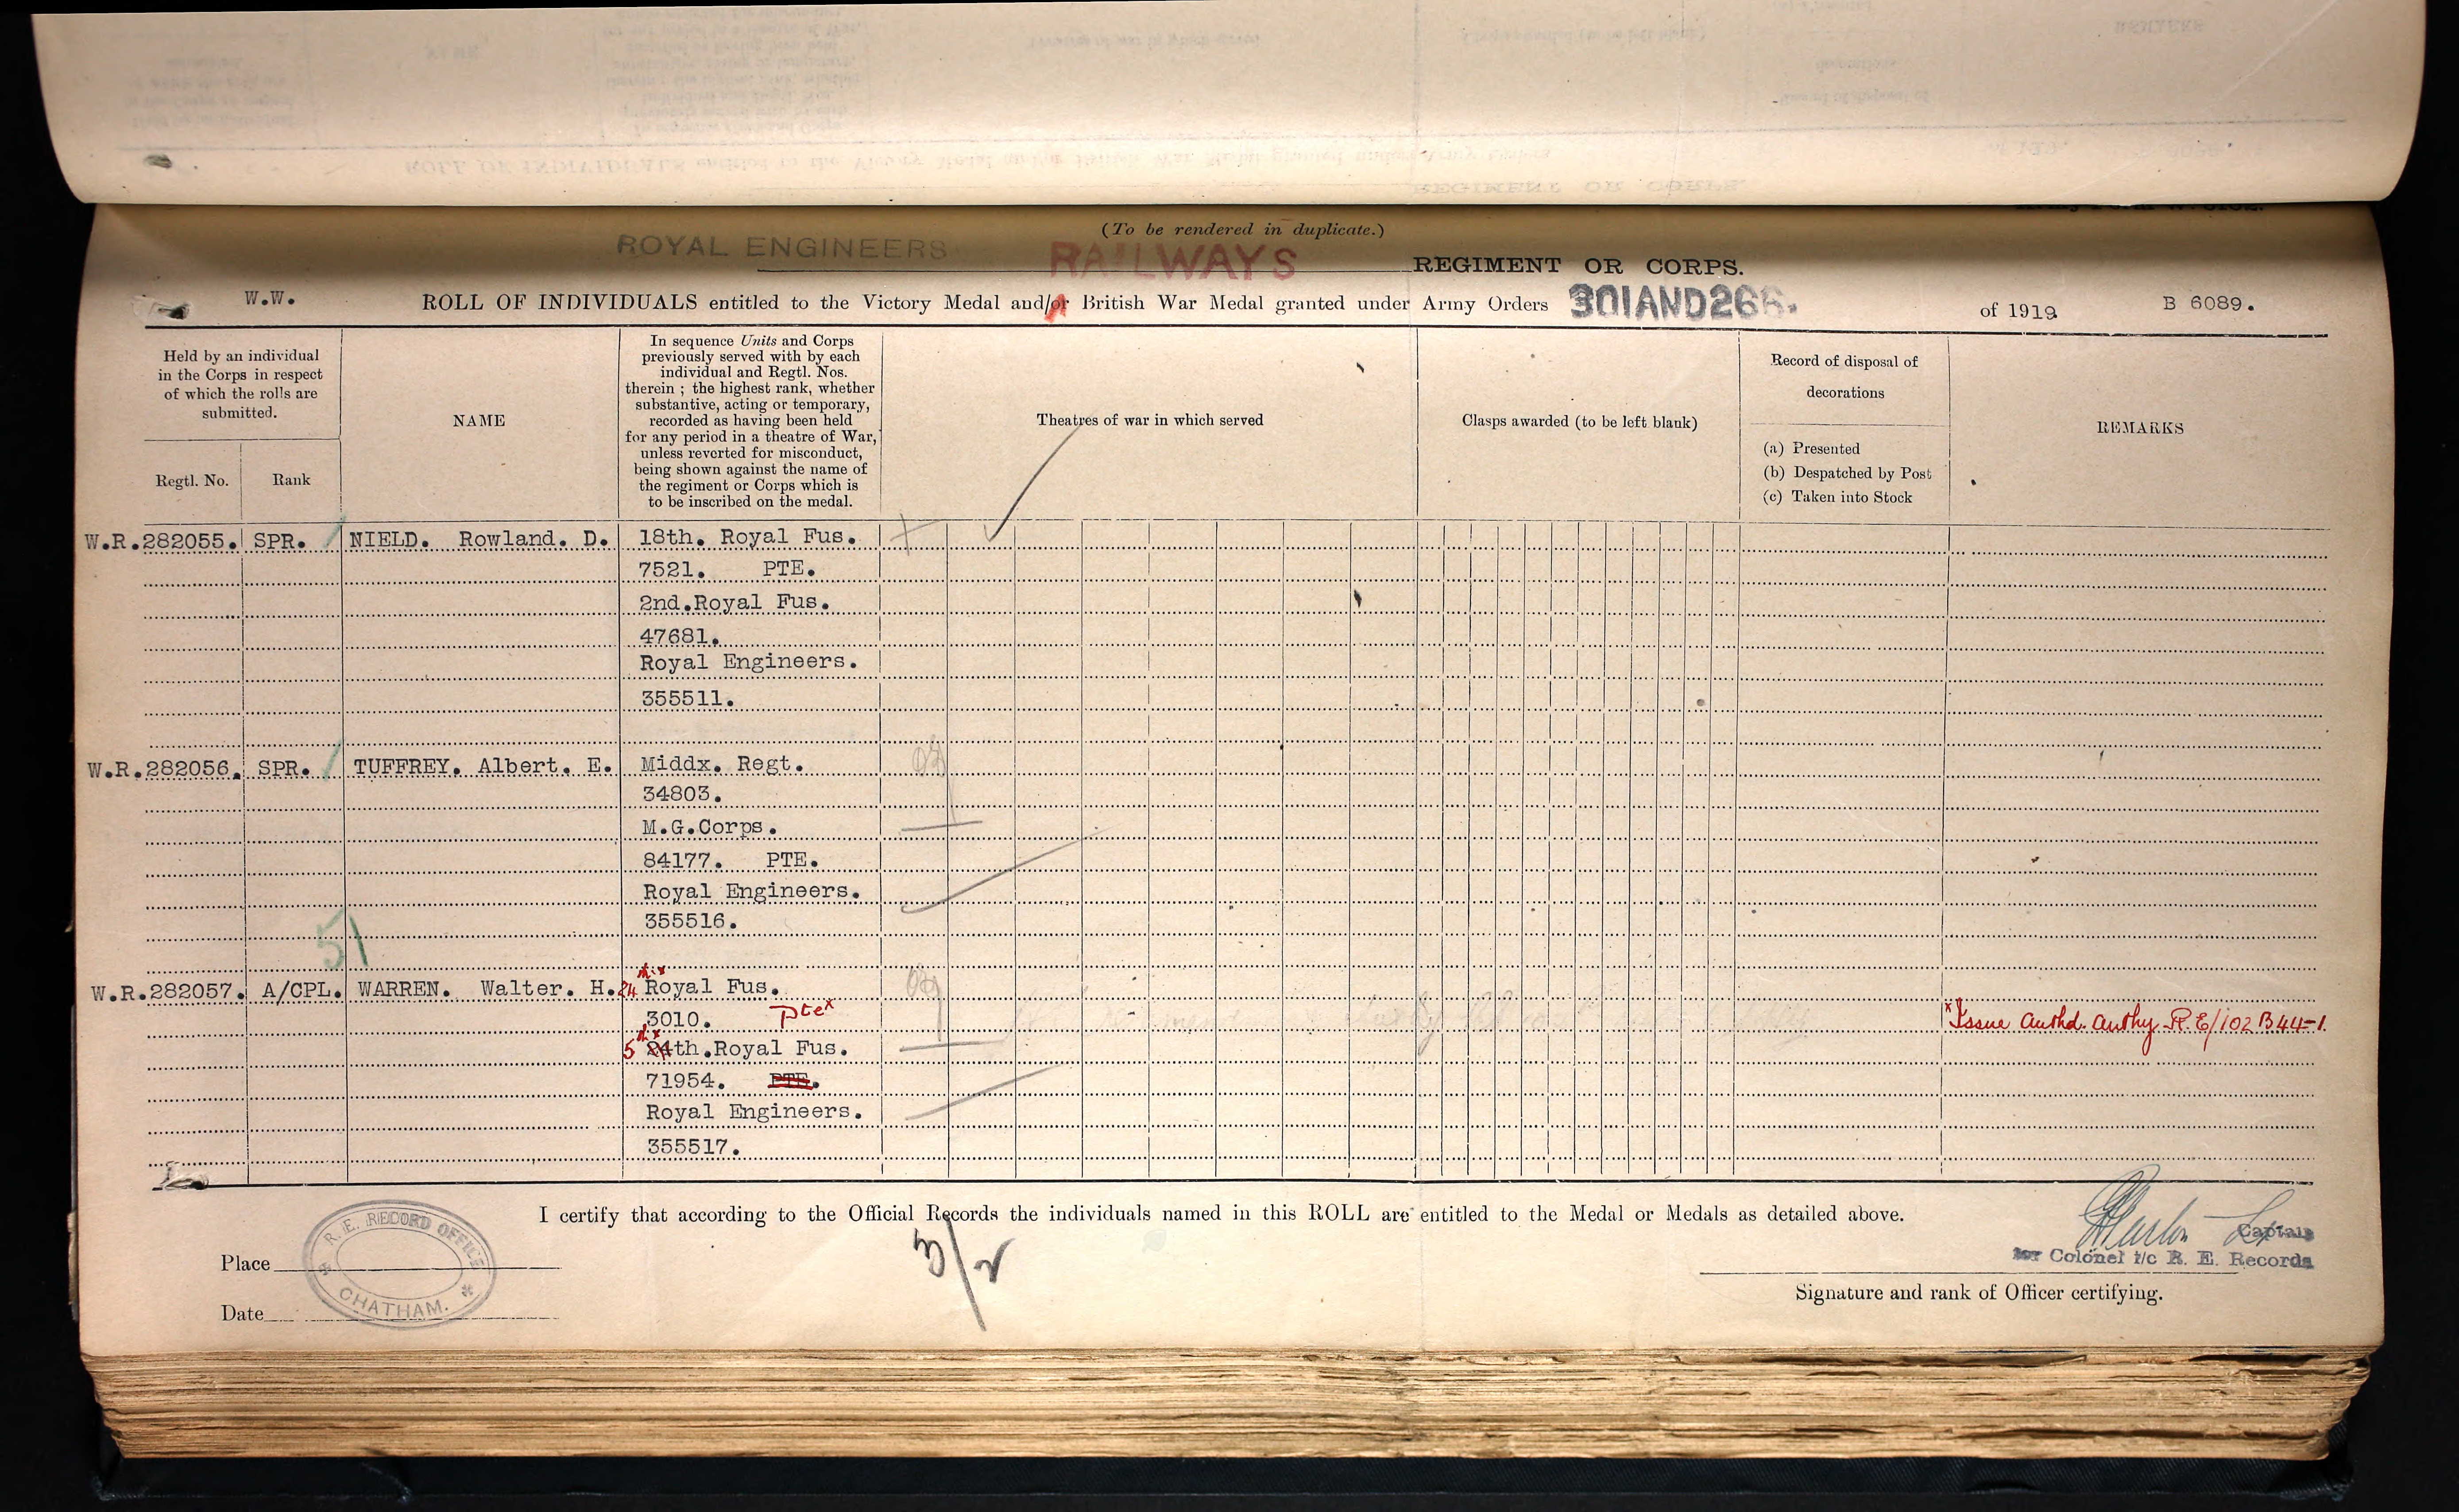 (To be rendered in duplicate.)
ROYAL ENGINEERS RAILWAYS REGIMENT OR CORPS.
W.W. ROLL OF INDIVIDUALS entitled to the Victory Medal and/or British War Medal granted under Army Orders 301AND266. of 1919 B 6089.
Held by an individual
in the Corps in respect
of which the rolls are
submitted.
Regtl. No. Rank
NAME
In sequence Units and Corps
previously served with by each
individual and Regtl. Nos.
therein ; the highest rank, whether
substantive, acting or temporary,
recorded as having been held
for any period in a theatre of War,
unless reverted for misconduct,
being shown against the name of
the regiment or Corps which is
to be inscribed on the medal.
Theatres of war in which served
Clasps awarded (to be left blank)
Record of disposal of
decorations
(a) Presented
(b) Despatched by Post
(c) Taken into Stock
REMARKS
W.R.282055. SPR. NIELD. Rowland. D. 18th. Royal Fus.
7521. PTE.
2nd.Royal Fus.
47681.
Royal Engineers.
355511.
W.R.282056. SPR. TUFFREY. Albert. E. Middx. Regt.
34803.
M.G.Corps.
84177. PTE.
Royal Engineers.
355516.
51
W.R.282057. A/CPL. WARREN. Walter. H. 24th.x Royal Fus.
3010. Pte x
x Issue authd. authy R.E/102 B44-1.
5th x 24th.Royal Fus.
71954. PTE.
Royal Engineers.
355517.
I certify that according to the Official Records the individuals named in this ROLL are entitled to the Medal or Medals as detailed above.
R.E. RECORD OFFICE
CHATHAM.
Place
Date
Captain
for Colonel i/c R. E. Records
Signature and rank of Officer certifying.